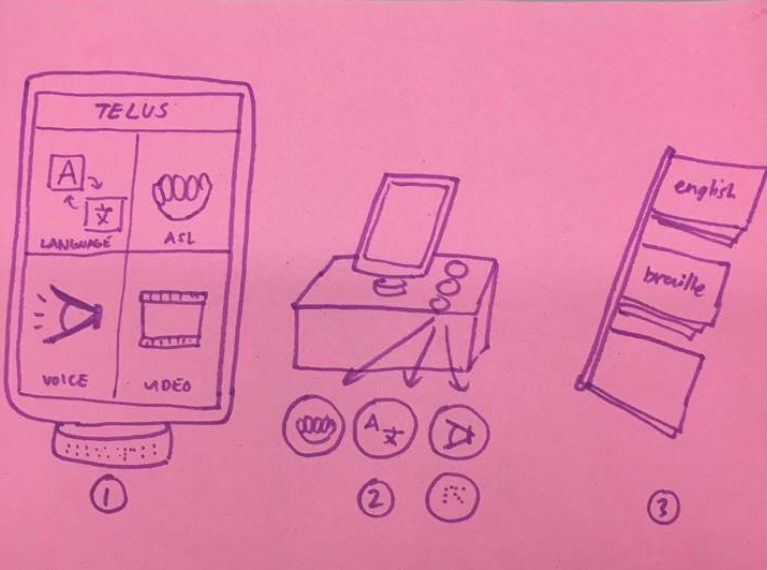 TELUS
A
文
LANGUAGE
ASL
VOICE
VIDEO
1
A文
2
english
braille
3